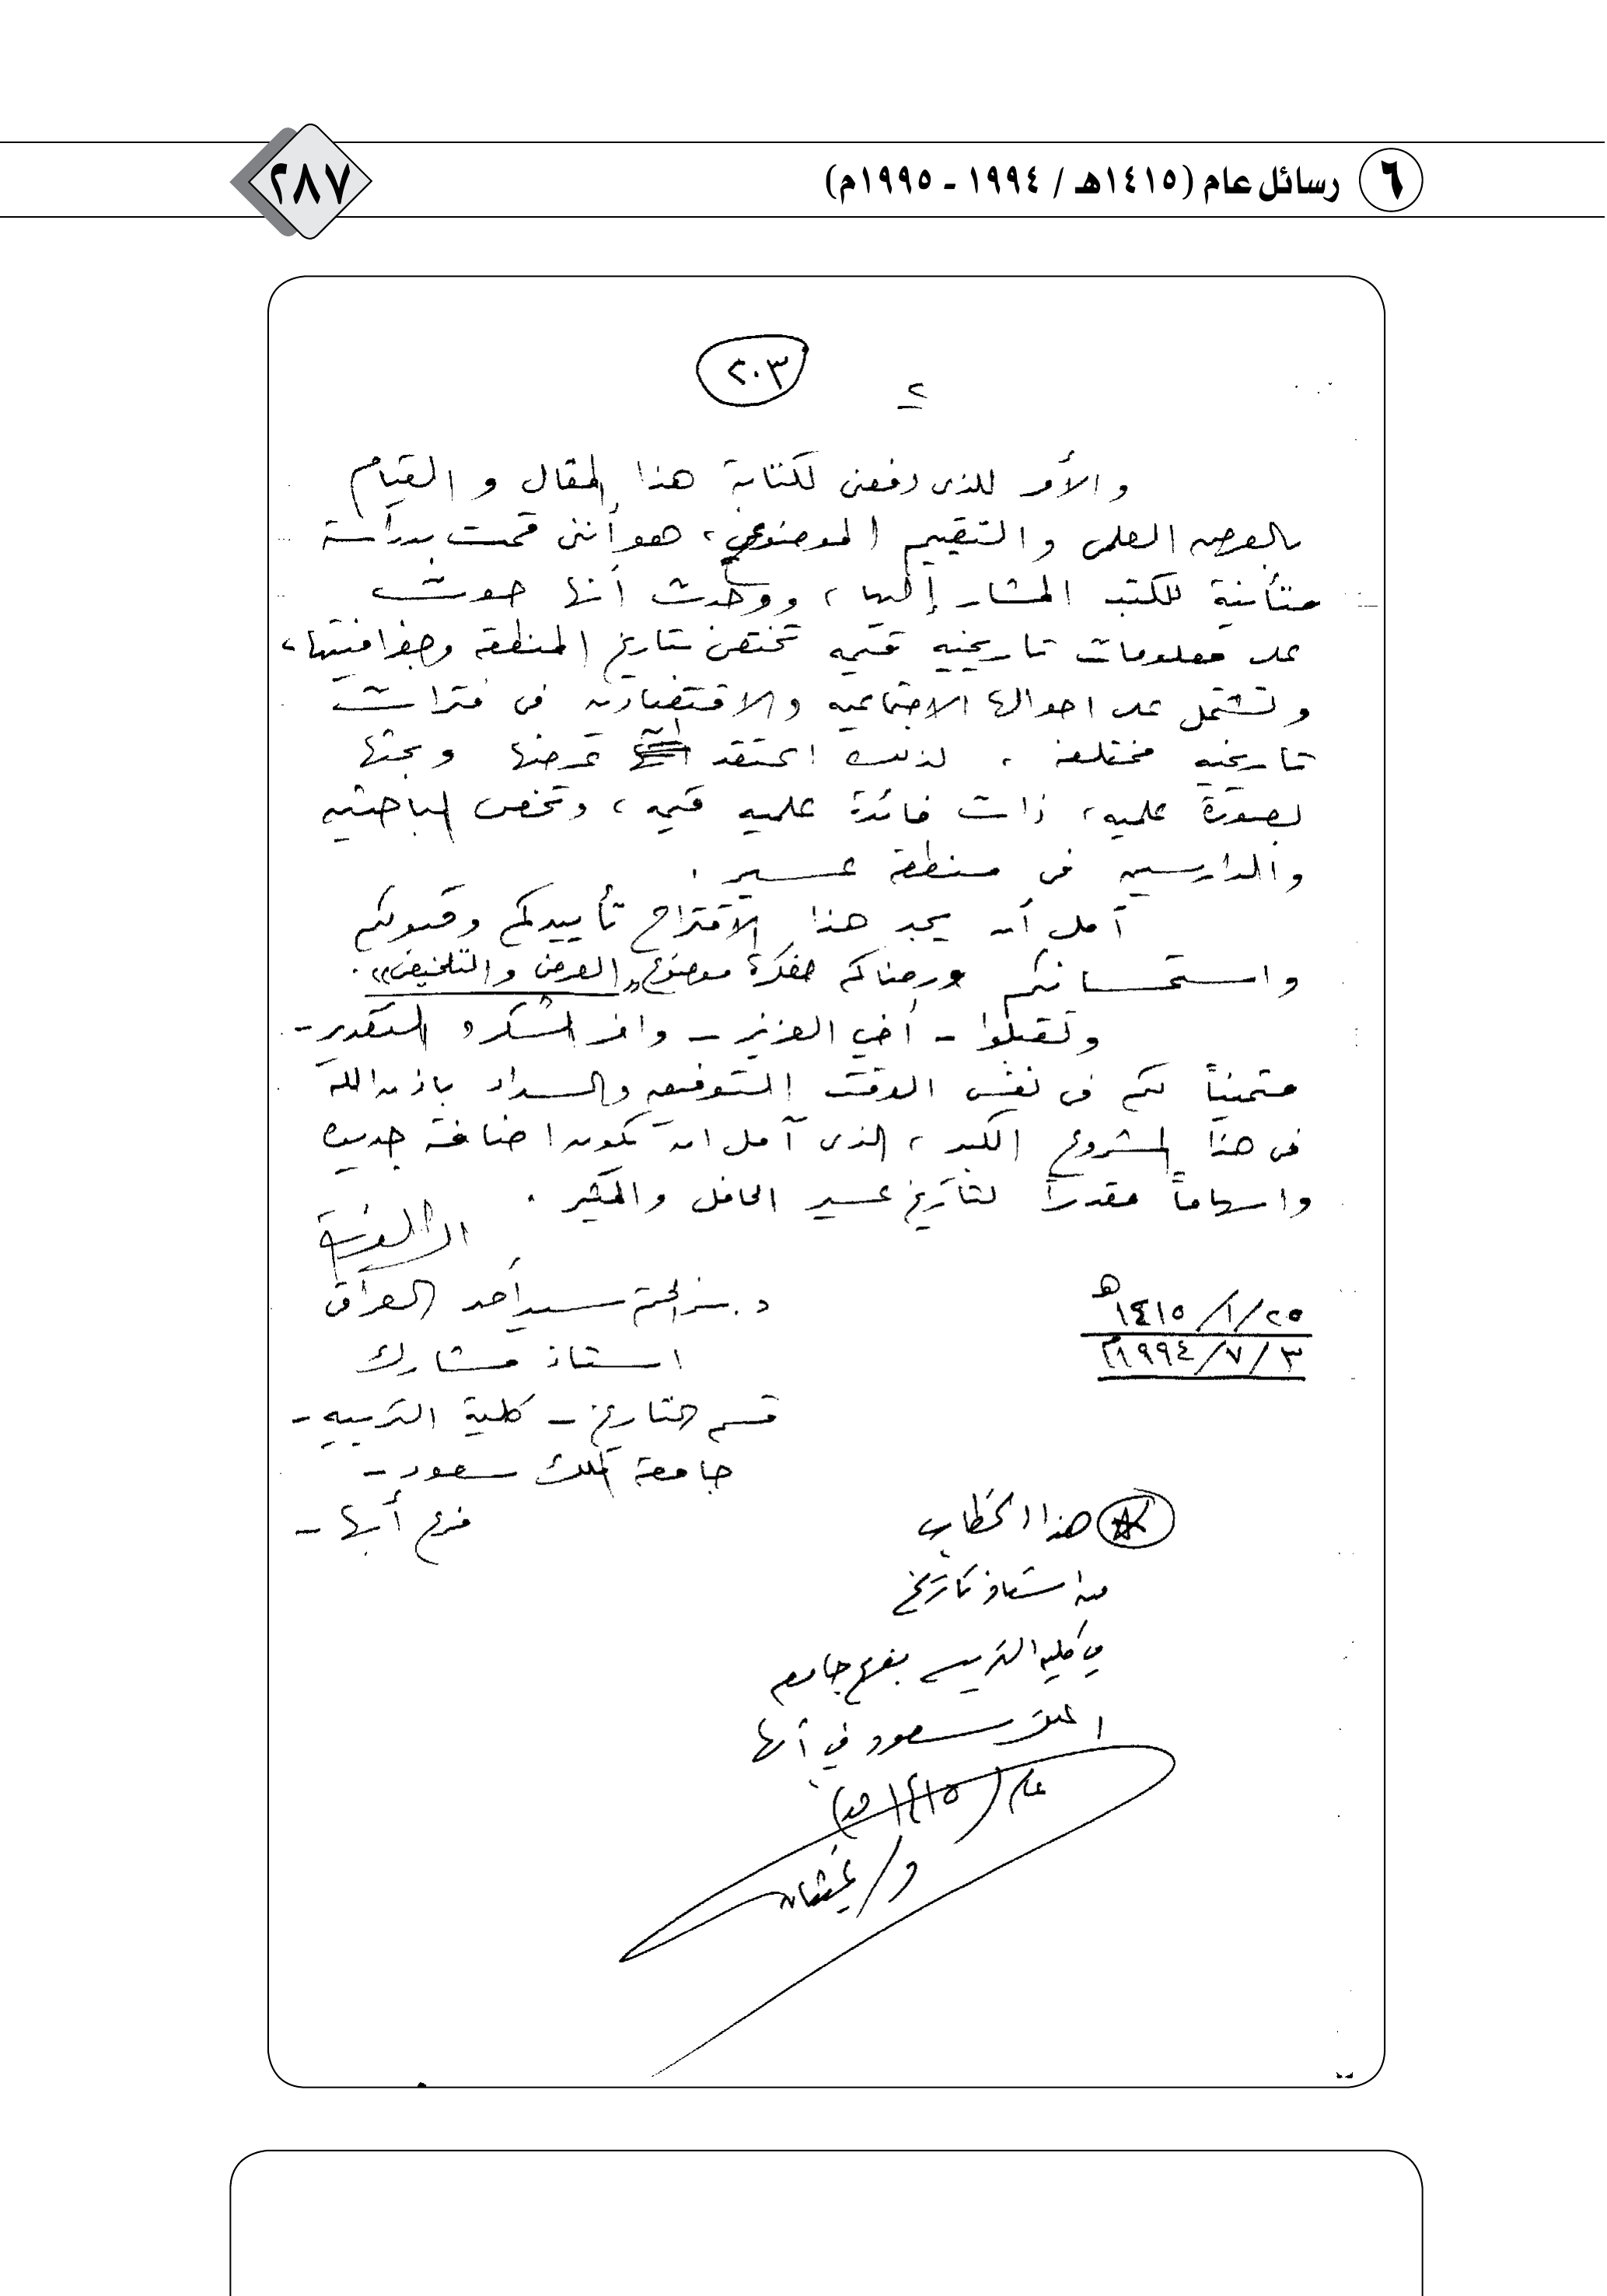 ٦ رسائل عام (١٤١٥هـ / ١٩٩٤ - ١٩٩٥م)
٢٨٧
٢٠٣
٢
والأمر الذى دفعنى لكتابة هذا المقال و القيام
بالعرض العلمى والتقييم الموضوعي، هو أننى قمت بدراسة
متأنية للكتب المشار إليها، ووجدت أنها حوت
على معلومات تاريخيه قيمه تختص بتاريخ المنطقة وجغرافيتها،
وتشتمل على احوالها الاجتماعيه والاقتصاديه فى فترات
تاريخيه مختلفه ، لذلك اعتقد ان عرضها وبحثها
بصورة علميه، ذات فائدة علميه قيمه، وتخص الباحثين
والدارسين فى منطقة عسير .
آمل أن يجد هذا الاقتراح تأييدكم وقبولكم
واستحسانكم ورضاكم لفكرة موضوع «العرض والتلخيص» .
وتقبلوا - أخي العزيز - وافر الشكر و التقدير -
متمنياً لكم فى نفس الوقت التوفيق والسداد باذن الله
فى هذا المشروع الكبير ، الذى آمل ان يكون اضافة جديده
واسهاماً مقدراً لتاريخ عسير الحافل والمثير .
د. سر الختم سيد أحمد العراقى
١٤١٥/١/٢٥هـ
١٩٩٤/٧/٣م
استاذ مشارك
قسم التاريخ - كلية التربيه -
جامعة الملك سعود -
فرع أبها -
هذا الخطاب
من استاذ تاريخ
في كلية التربيه بفرع جامعه
الملك سعود في أبها
عام (١٤١٥هـ)
د/ غيثان